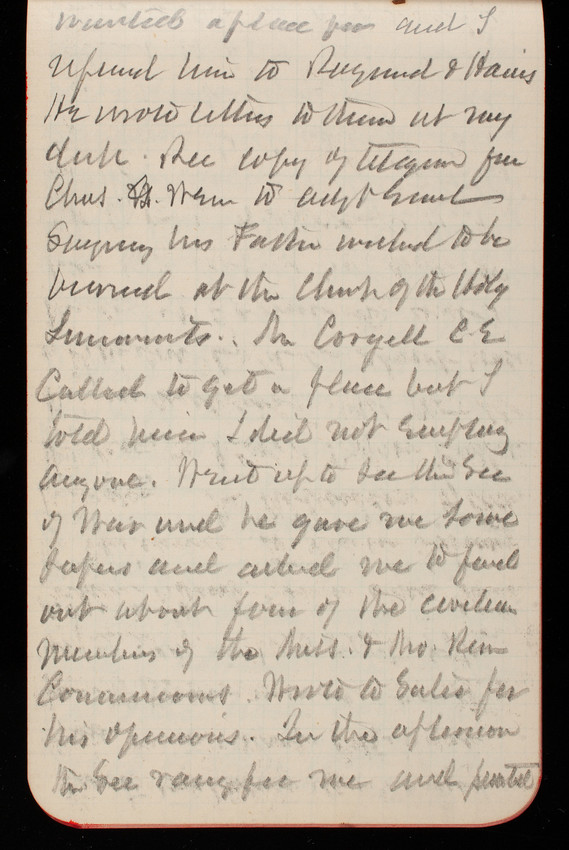 wanted a place for and I
refered him to Raymond & Hains
He wrote letters to them at my
desk. Rec copy of telegram from
Chas. to adjt Genl
Saying his Father wished to be
buried at the Church of the Holy
Innocents. Mr Coryell C E
Called to get a place but I
told him I did not Employ
anyone. Went up to see the Sec
of War and he gave me some
papers and asked me to find
out about four of the civilian
members of the Miss. & Mo. Riv
Commissions. Wrote to Suter for
his opinions. In the afternoon
the Sec rang for me and wanted